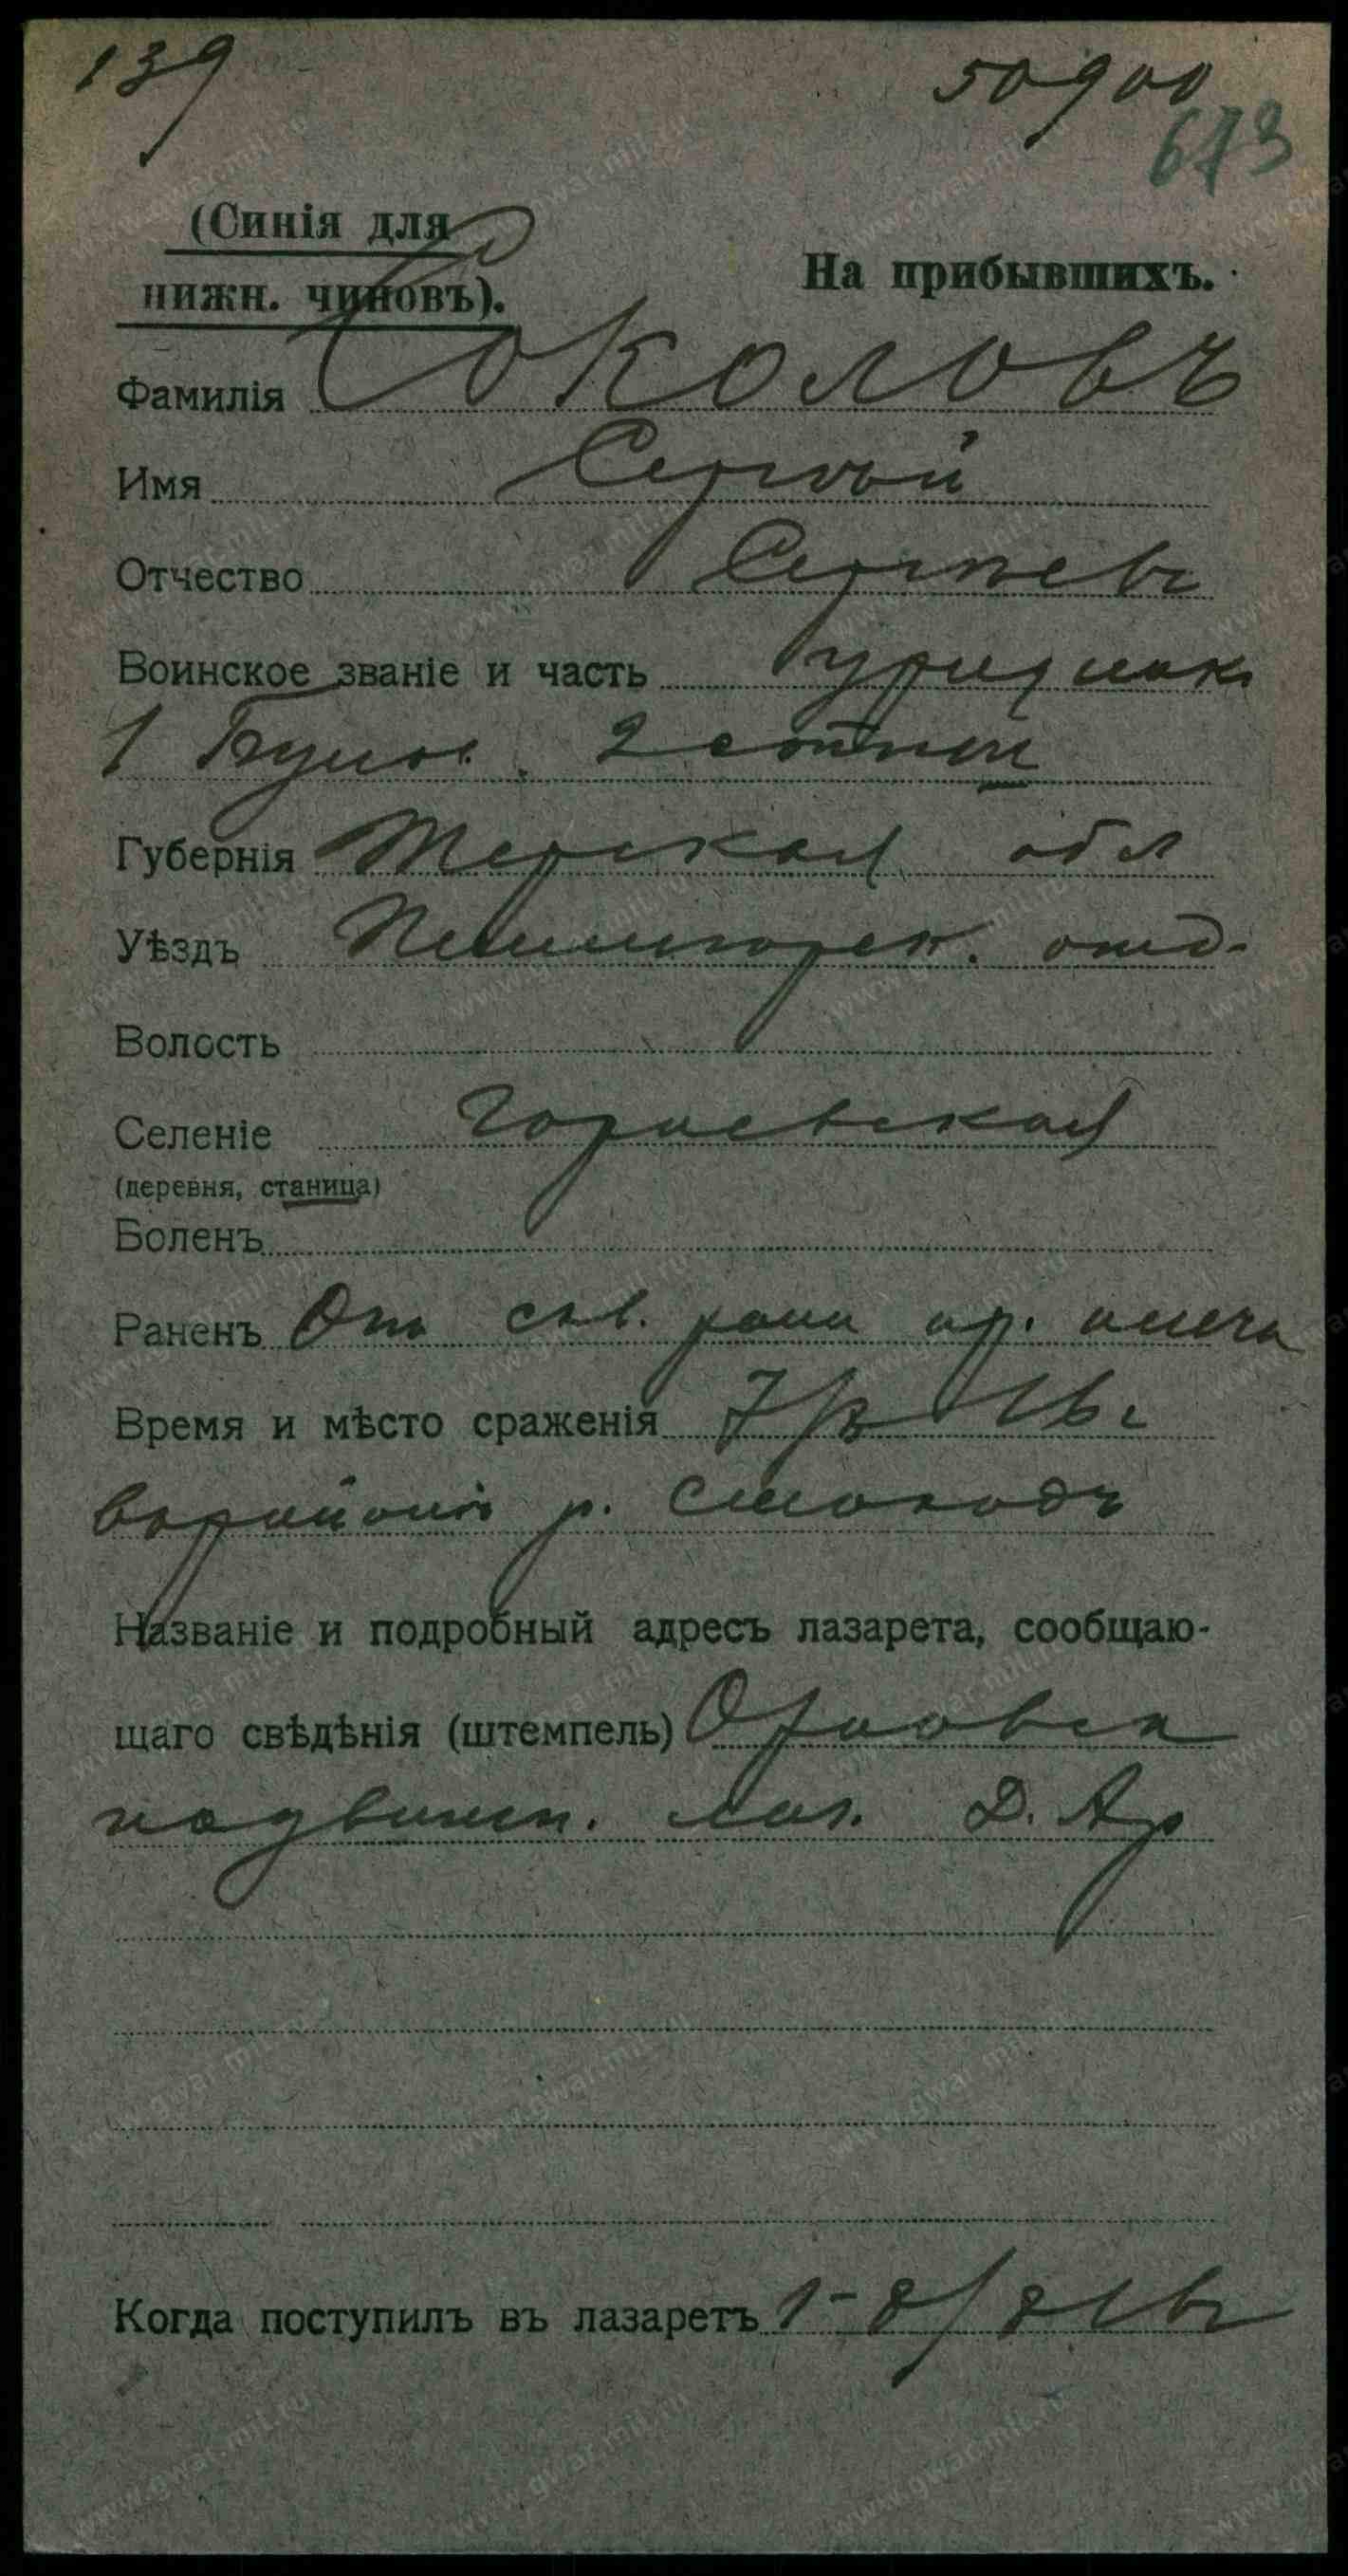 139
50900
673
(Синія для
нижн. чиновъ).
На прибывшихъ.
Фамилія Соколовъ
Имя Сергѣй
Отчество Сергѣевъ
Воинское званіе и часть урядник
1 2 сотни
Губернія Терская обл
Уѣздъ Пятигорск. отд.
Волость
Селеніе Горячевская
(деревня, станица)
Боленъ
Раненъ Огн скв. рана пр. плеча
Время и мѣсто сраженія 7/8 16 г
въ районѣ р. Стоходъ
Названіе и подробный адресъ лазарета, сообщаю-
щаго свѣдѣнія (штемпель) Орловск
подвижн. лаз. Д. Ар
Когда поступилъ въ лазаретъ 1-8/8 16 г